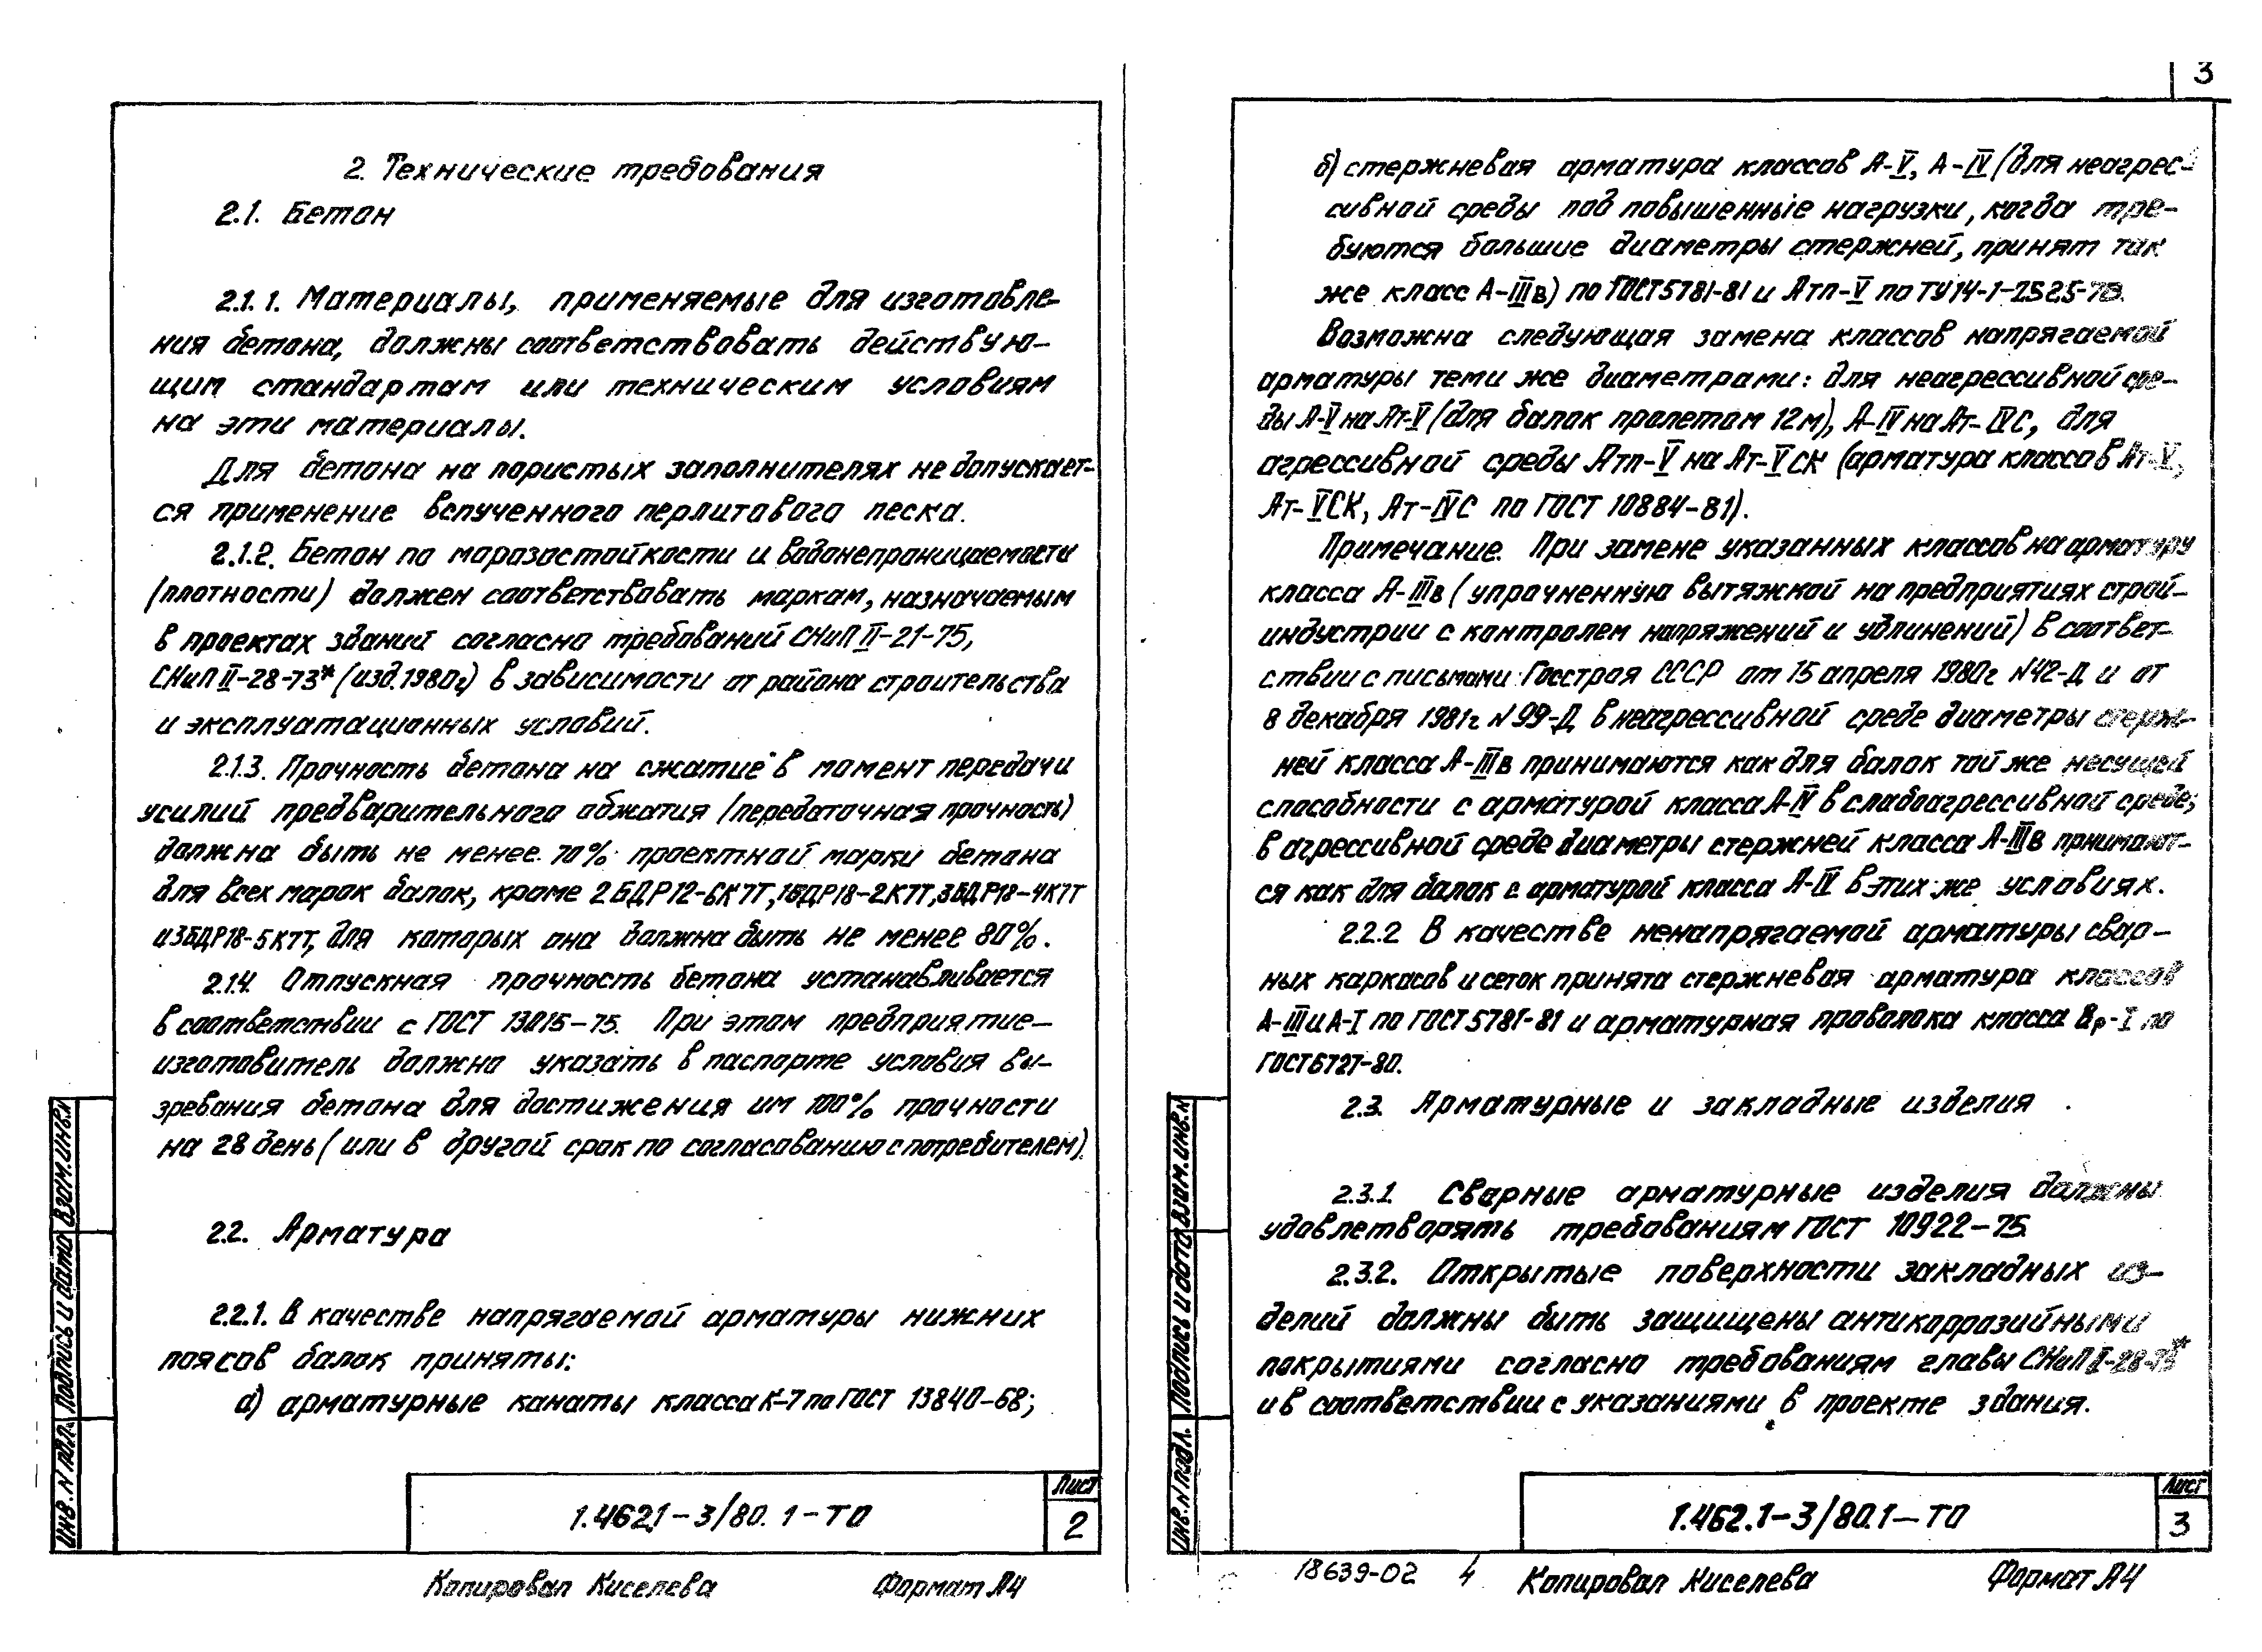 3
2. Технические требования
2.1. Бетон
2.1.1. Материалы, применяемые для изготовле-
ния бетона, должны соответствовать действую-
щим стандартам или техническим условиям
на эти материалы.
Для бетона на пористых заполнителях не допускает-
ся применение вспученного перлитового песка.
2.1.2. Бетон по морозостойкости и водонепроницаемости
(плотности) должен соответствовать маркам, назначаемым
в проектах зданий согласно требований СНиП II-21-75,
СНиП II-28-73* (изд.1980г.) в зависимости от района строительства
и эксплуатационных условий.
2.1.3. Прочность бетона на сжатие в момент передачи
усилий предварительного обжатия (передаточная прочность)
должна быть не менее 70% проектной марки бетона
для всех марок балок, кроме 2БДР12-6К7Т, 1БДР18-2К7Т, 3БДР18-4К7Т
и 3БДР18-5К7Т, для которых она должна быть не менее 80%.
2.1.4. Отпускная прочность бетона устанавливается
в соответствии с ГОСТ 13015-75. При этом предприятие-
изготовитель должно указать в паспорте условия вы-
зревания бетона для достижения им 100% прочности
на 28 день (или в другой срок по согласованию с потребителем).
2.2. Арматура
2.2.1. В качестве напрягаемой арматуры нижних
поясов балок приняты:
а) арматурные канаты класса К-7 по ГОСТ 13840-68;
Инв. N подл. Подпись и дата Взам. инв. N
1.462.1-3/80.1-ТО
Лист
2
Копировал Киселева Формат А4
б) стержневая арматура классов А-V, А-IV (для неагрес-
сивной среды под повышенные нагрузки, когда тре-
буются большие диаметры стержней, принят так
же класс А-IIIв) по ГОСТ 5781-81 и Атп-V по ТУ 14-1-2525-78.
Возможна следующая замена классов напрягаемой
арматуры теми же диаметрами: для неагрессивной сре-
ды А-V на Ат-V (для балок пролетом 12м), А-IV на Ат-IVС, для
агрессивной среды Атп-V на Ат-VСК (арматура классов Ат-V,
Ат-VСК, Ат-IVС по ГОСТ 10884-81).
Примечание. При замене указанных классов на арматуру
класса А-IIIв (упрочненную вытяжкой на предприятиях строй-
индустрии с контролем напряжений и удлинений) в соответ-
ствии с письмами Госстроя СССР от 15 апреля 1980г N42-Д и от
8 декабря 1981г. N99-Д в неагрессивной среде диаметры стерж-
ней класса А-IIIв принимаются как для балок той же несущей
способности с арматурой класса А-IV в слабоагрессивной среде;
в агрессивной среде диаметры стержней класса А-IIIв принимают-
ся как для балок с арматурой класса А-IV в этих же условиях.
2.2.2 В качестве ненапрягаемой арматуры свар-
ных каркасов и сеток принята стержневая арматура классов
А-III и А-I по ГОСТ 5781-81 и арматурная проволока класса Вр-I по
ГОСТ 6727-80.
2.3. Арматурные и закладные изделия
2.3.1. Сварные арматурные изделия должны
удовлетворять требованиям ГОСТ 10922-75.
2.3.2. Открытые поверхности закладных из-
делий должны быть защищены антикоррозийными
покрытиями согласно требованиям главы СНиП II-28-73*
и в соответствии с указаниями в проекте здания.
Инв. N подл. Подпись и дата Взам. инв. N
1.462.1-3/80.1-ТО
Лист
3
18639-02 4 Копировал Киселева Формат А4